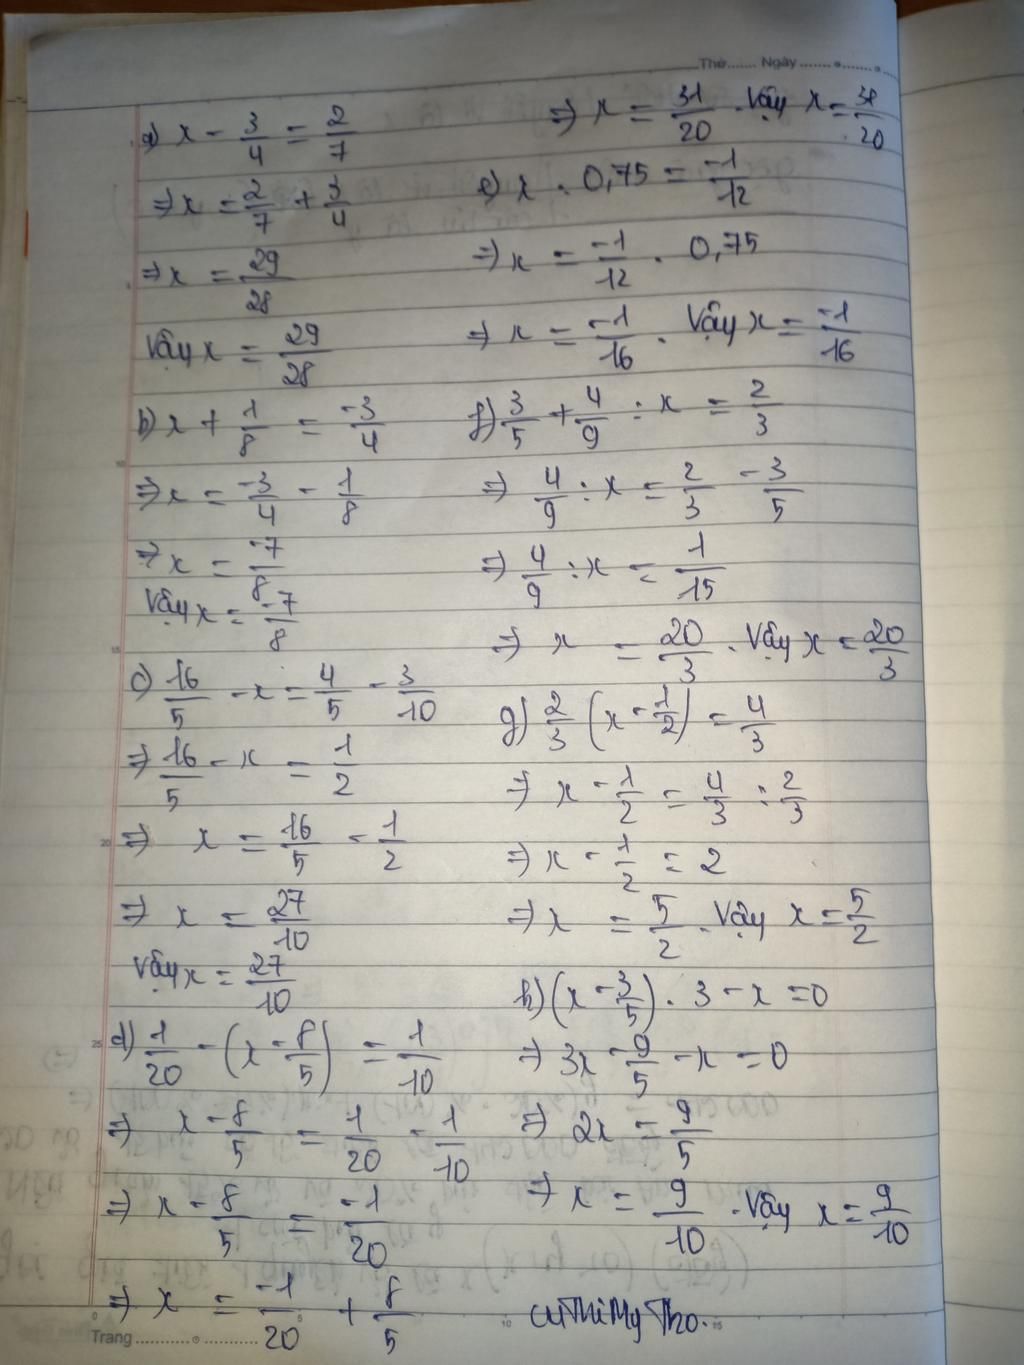 Thứ....... Ngày...........
a) x - 3/4 = 2/7
=> x = 2/7 + 3/4
=> x = 29/28
Vậy x = 29/28
b) x + 1/8 = -3/4
=> x = -3/4 - 1/8
=> x = -7/8
Vậy x = -7/8
c) 16/5 - x = 4/5 - 3/10
=> 16/5 - x = 1/2
=> x = 16/5 - 1/2
=> x = 27/10
Vậy x = 27/10
d) 1/20 - (x - 8/5) = 1/10
=> x - 8/5 = 1/20 - 1/10
=> x - 8/5 = -1/20
=> x = -1/20 + 8/5
=> x = 31/20 . Vậy x = 31/20
e) x . 0,75 = -1/12
=> x = -1/12 . 0,75
=> x = -1/16 . Vậy x = -1/16
f) 3/5 + 4/9 : x = 2/3
=> 4/9 : x = 2/3 - 3/5
=> 4/9 : x = 1/15
=> x = 20/3 . Vậy x = 20/3
g) 2/3 (x - 1/2) = 4/3
=> x - 1/2 = 4/3 : 2/3
=> x - 1/2 = 2
=> x = 5/2 . Vậy x = 5/2
h) (x - 3/5) . 3 - x = 0
=> 3x - 9/5 - x = 0
=> 2x = 9/5
=> x = 9/10 . Vậy x = 9/10
Trang